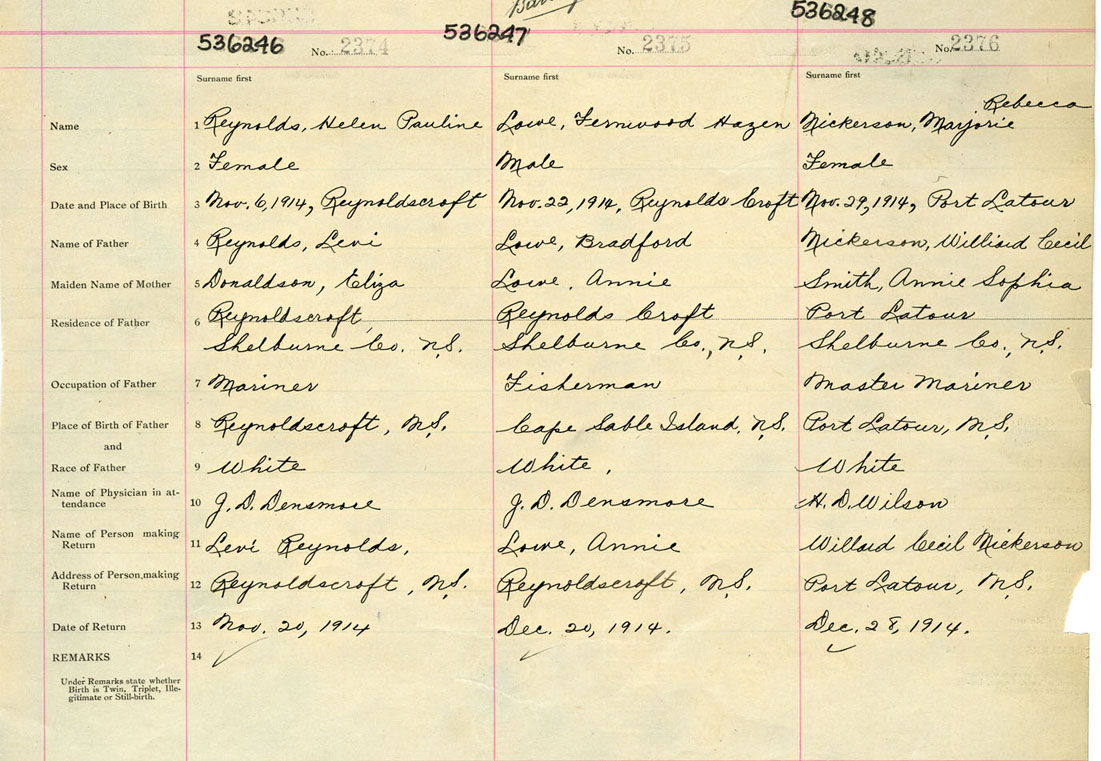 536246 No. 2374 536247 No. 2375 536248 No. 2376
Surname first Surname first Surname first
Rebecca
Name 1 Reynolds, Helen Pauline Lowe, Fernwood Hazen Nickerson, Marjorie
Sex 2 Female Male Female
Date and Place of Birth 3 Nov. 6, 1914, Reynoldscroft Nov. 22, 1914, Reynolds Croft Nov. 29, 1914, Port Latour
Name of Father 4 Reynolds, Levi Lowe, Bradford Nickerson, Williard Cecil
Maiden Name of Mother 5 Donaldson, Eliza Lowe, Annie Smith, Annie Sophia
Residence of Father 6 Reynoldscroft, Reynolds Croft Port Latour
Shelburne Co. N.S. Shelburne Co., N.S. Shelburne Co., N.S.
Occupation of Father 7 Mariner Fisherman Master Mariner
Place of Birth of Father 8 Reynoldscroft, N.S. Cape Sable Island, N.S. Port Latour, N.S.
and
Race of Father 9 White White, White
Name of Physician in at-
tendance 10 J. D. Densmore J. D. Densmore H. D. Wilson
Name of Person making
Return 11 Levi Reynolds, Lowe, Annie Willard Cecil Nickerson
Address of Person making
Return 12 Reynoldscroft, N.S. Reynoldscroft, N.S. Port Latour, N.S.
Date of Return 13 Nov. 20, 1914 Dec. 20, 1914. Dec. 28, 1914.
REMARKS 14
Under Remarks state whether
Birth is Twin, Triplet, Ille-
gitimate or Still-birth.